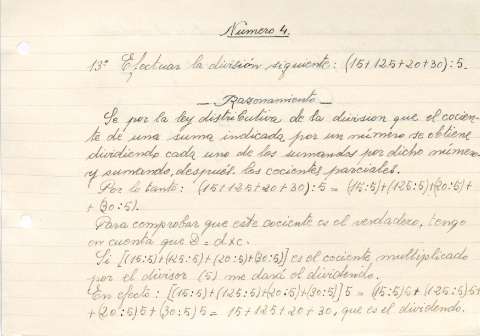 Número 4.
13º Efectuar la división siguiente: (15+125+20+30):5.
— Razonamiento —
Se por la ley distributiva de la division que el cocien-
te de una suma indicada por un número se obtiene
dividiendo cada uno de los sumandos por dicho número
y sumando, después los cocientes parciales.
Por lo tanto: (15+125+20+30):5 = (15:5)+(125:5)+(20:5)+
+(30:5).
Para comprobar que este cociente es el verdadero, tengo
en cuenta que D = d×c.
Si [(15:5)+(125:5)+(20:5)+(30:5)] es el cociente, multiplicado
por el divisor (5) me dará el dividendo.
En efecto: [(15:5)+(125:5)+(20:5)+(30:5)] 5 = (15:5)5+(125:5)5+
+(20:5)5+(30:5)5 = 15+125+20+30, que es el dividendo.